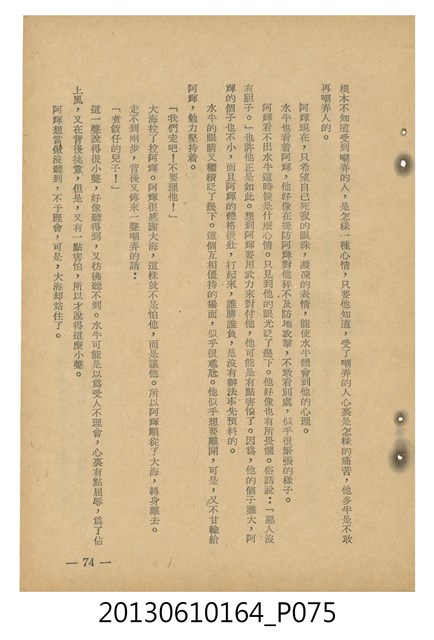 根本不知道受到嘲弄的人，是怎樣一種心情，只要他知道，受了嘲弄的人心裏是怎樣的痛苦，他多半是不敢
再嘲弄人的。
阿輝現在，只希望自己死寂的眼睛，凝凍的表情，能使水牛體會到他的心理。
水牛也看着阿輝，他好像在提防阿輝對他猝不及防地攻擊，不敢看別處，似乎很緊張的樣子。
阿輝看不出水牛這時候是什麼心情。只見到他的眼光眨了幾下。他好像也有所畏懼。俗話說：「惡人沒
有胆子。」也許他正是如此。想到阿輝要用武力來對付他，他可能是有點害怕了。因爲，他的個子雖大，阿
輝的個子也不小，而且阿輝的體格很壯，打起來，誰勝誰負，是沒有辦法事先預料的。
水牛的眼睛又繼續眨了幾下。這個互相僵持的場面，似乎很尷尬。他似乎想要離開，可是，又不甘輸給
阿輝，勉力堅持着。
「我們走吧！不要理他！」
大海拉了拉阿輝。阿輝很感謝大海，這樣就不是怕他，而是讓他。所以阿輝順從了大海，轉身離去。
走不到兩步，背後又傳來一聲嘲弄的話：
「煮飯仔的兒子！」
這一聲說得很小聲，好像聽得到，又彷彿聽不到。水牛可能是以爲受人不理會，心裏有點屈辱，爲了佔
上風，又在背後挑釁，但是，又有一點害怕，所以才說得這麼小聲。
阿輝想當做沒聽到，不予理會，可是，大海却站住了。
— 74 —
20130610164_P075